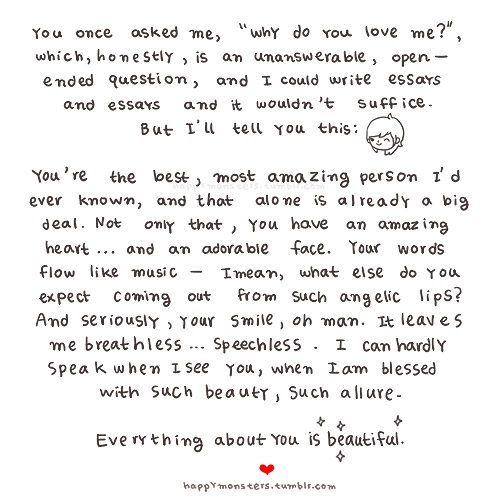 You once asked me, "why do you love me?",
which, honestly, is an unanswerable, open-
ended question, and I could write essays
and essays and it wouldn't suffice.
But I'll tell you this:
You're the best, most amazing person I'd
happymonsters.tumblr.com
ever known, and that alone is already a big
deal. Not only that, you have an amazing
heart... and an adorable face. Your words
flow like music - I mean, what else do you
expect coming out from such angelic lips?
And seriously, your smile, oh man. It leaves
me breathless... speechless. I can hardly
speak when I see you, when I am blessed
with such beauty, such allure.
Everything about you is beautiful.
happymonsters.tumblr.com